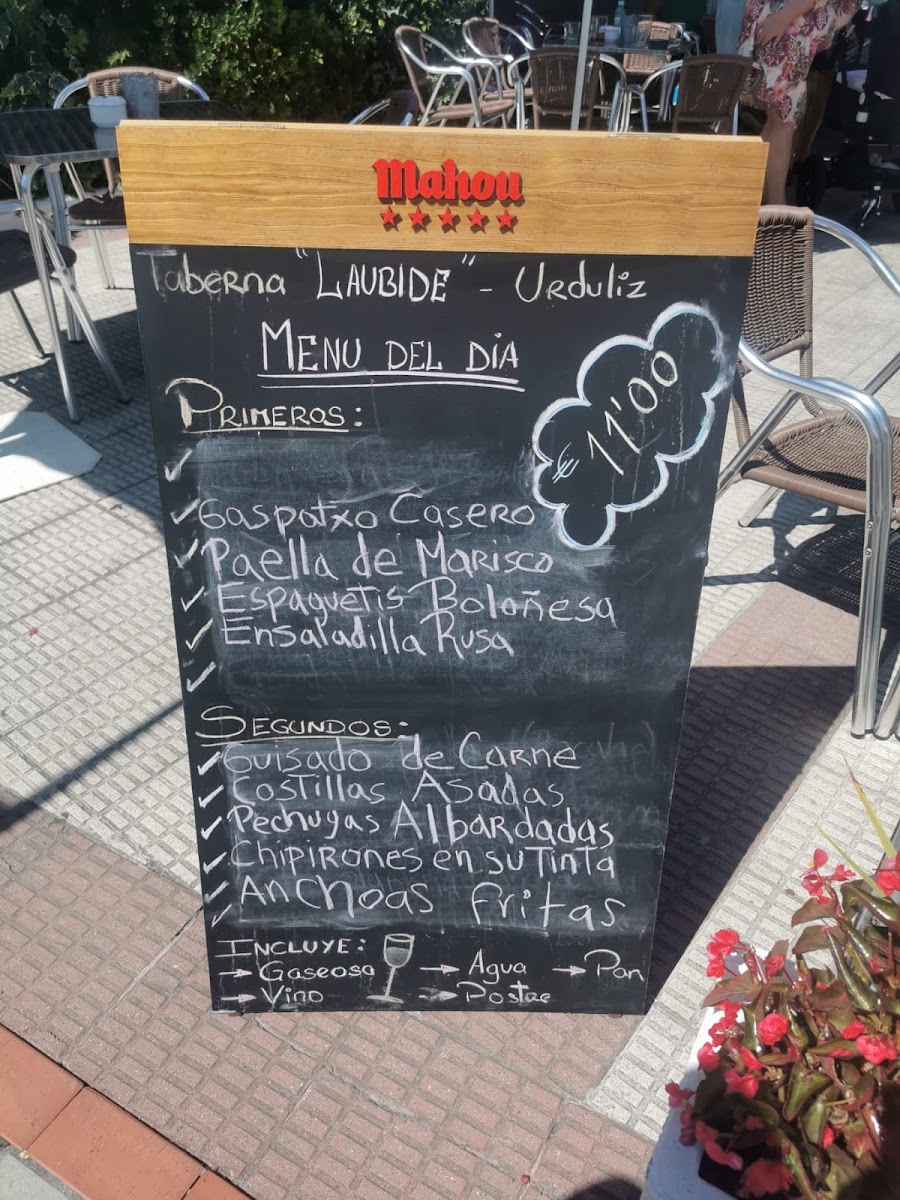 Mahou
Taberna "LAUBIDE" - Urduliz
MENU DEL DIA
€ 11'00
PRIMEROS:
Gaspatxo Casero
Paella de Marisco
Espaguetis Boloñesa
Ensaladilla Rusa
SEGUNDOS:
Guisado de Carne
Costillas Asadas
Pechugas Albardadas
Chipirones en su Tinta
Anchoas fritas
INCLUYE:
→ Gaseosa → Agua → Pan
→ Vino → Postre